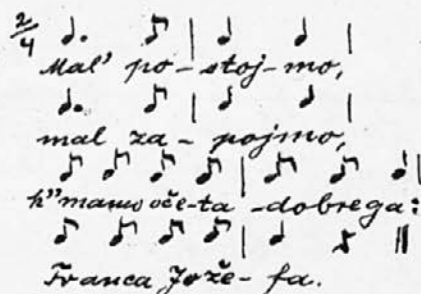 2/4
Mal' po-stoj-mo,
mal za-pojmo,
očeta-dobrega:
Franca Jože-fa.